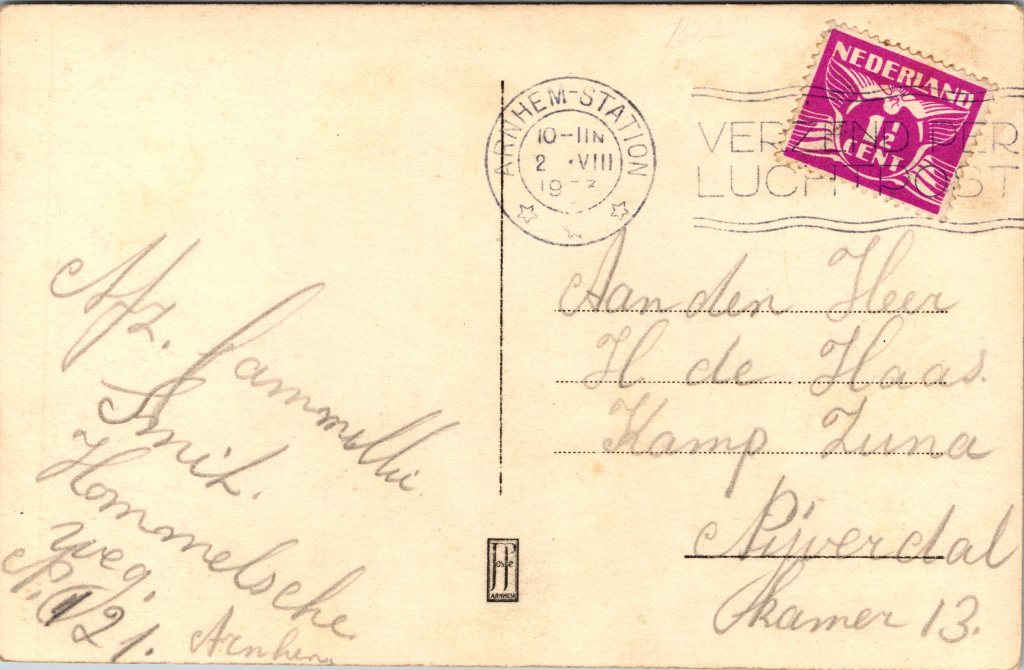 NEDERLAND
1½
CENT
ARNHEM-STATION
10-11N
2 VIII
VERZEND PER
LUCHTPOST
Afz. fammellie
Smit.
Hommelsche
weg.
121.
Arnhem
Aan den Heer
H. de Haas.
Kamp Zuna
Nijverdal
kamer 13.
ARNHEM